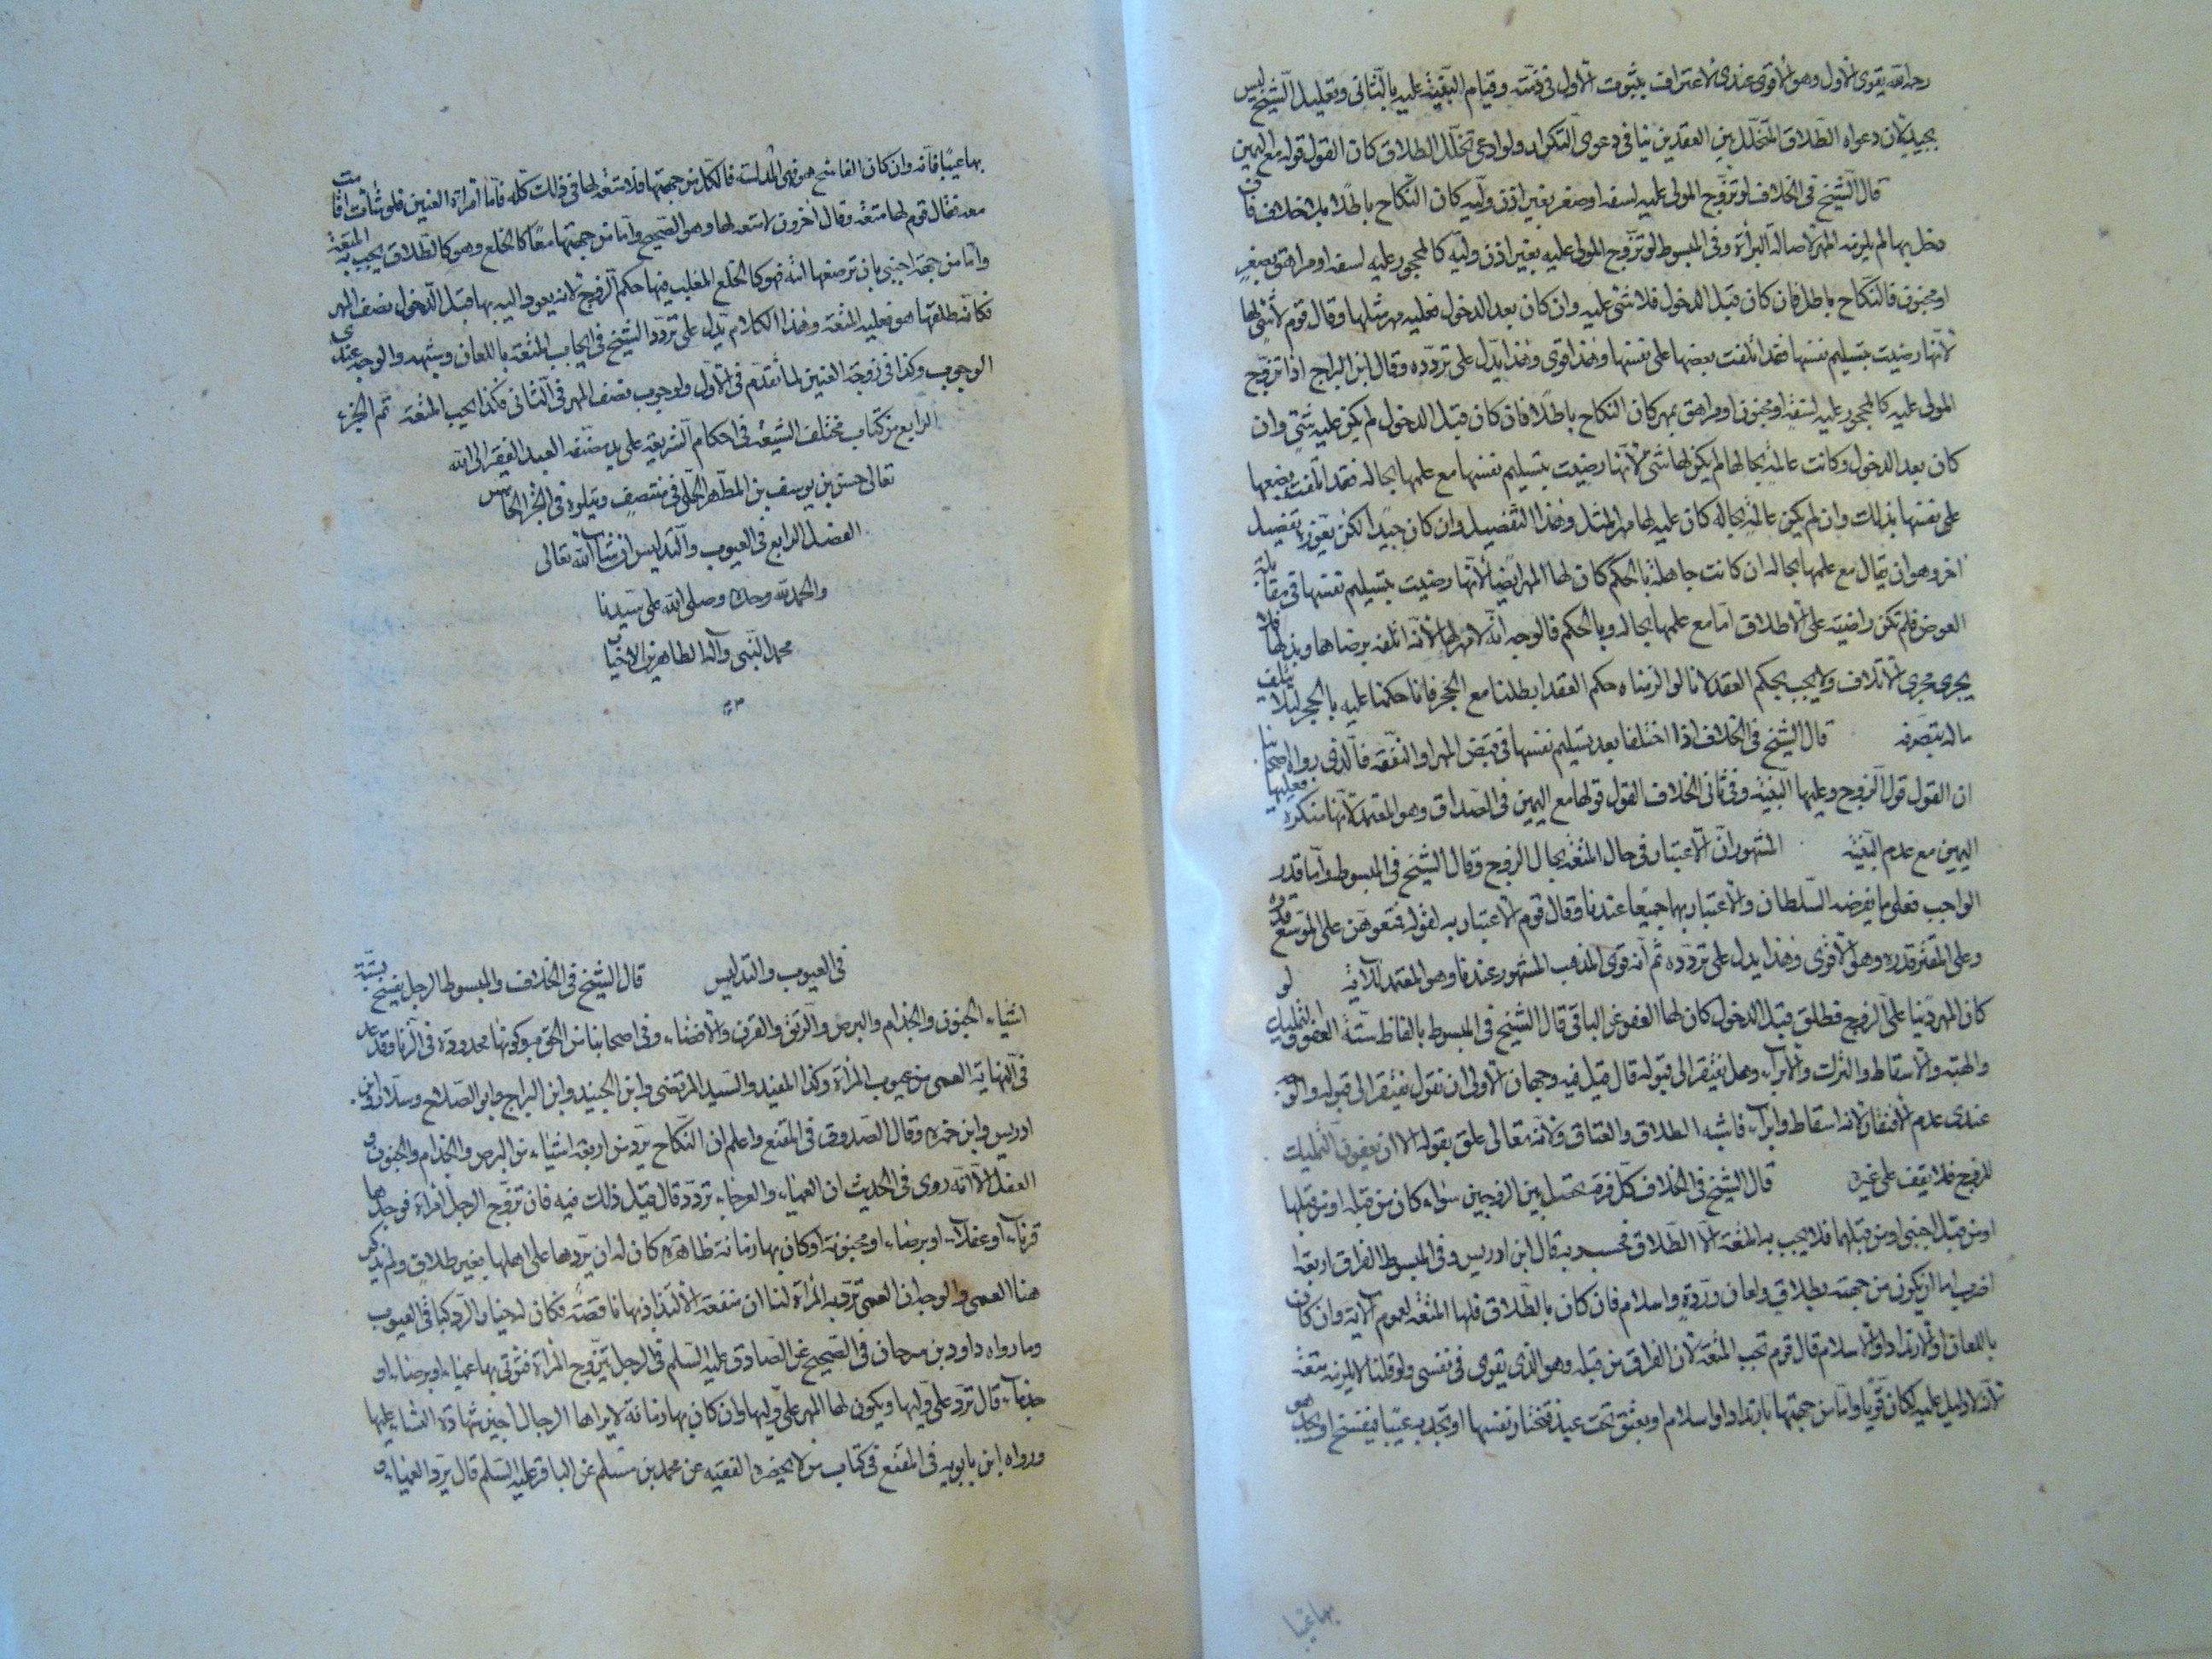 رحمه الله يقوى الاول وهو الاقوى عندى لاعترافه بثبوت الاول فى ذمته وقيام البينة عليه بالثانى وتعليل الشيخ ليس
بجيد لان دعواه الطلاق المتخلل بين العقدين ينافى دعوى التكرار ولو ادعى تخلل الطلاق كان القول قوله مع اليمين
قال الشيخ فى الخلاف لو تزوج المولى عليه لسفه او صغر بغير اذن وليه كان النكاح باطلا بلا خلاف فان
دخل بها لم يلزمه المهر لاصالة البرأة وفى المبسوط لو تزوج المولى عليه بغير اذن وليه كالمحجور عليه لسفه او مراهق بصغر
او مجنون فالنكاح باطل فان كان قبل الدخول فلا شئ عليه وان كان بعد الدخول فعليه مهر مثلها وقال قوم لا شئ لها
لانها رضيت بتسليم نفسها فقد اتلفت بعضها على نفسها وهذا قوى وهذا يدل على تردده وقال ابن البراج اذا تزوج
المولى عليه كالمحجور عليه لسفه او مجنون او مراهق بمهر كان النكاح باطلا فان كان قبل الدخول لم يكن عليه شئ وان
كان بعد الدخول وكانت عالمة بحاله لم يكن لها شئ لانها رضيت بتسليم نفسها مع علمها بحاله فقد اتلفت بضعها
على نفسها بذلك وان لم يكن عالمة بحاله كان عليه لها مهر المثل وهذا التفصيل وان كان جيدا لكن يعوزه تفصيل
اخر وهو ان يقال مع علمها بحاله ان كانت جاهلة بالحكم كان لها المهر ايضا لانها رضيت بتسليم نفسها فى مقابلة
العوض فلم تكن راضية على الاطلاق اما مع علمها بحاله وبالحكم فالوجه انه لا مهر لها لانه اتلفه برضاها وبذلها فلا
يجرى مجرى الاتلاف ولا يجب بحكم العقد لانا لو الزمناه حكم العقد ابطلنا مع الحجر فانا حكمنا عليه بالحجر لئلا يتلف
ماله بتصرفه قال الشيخ فى الخلاف اذا اختلفا بعد تسليم نفسها فى قبض المهر او النفقة فالذى رواه اصحابنا
ان القول قول الزوج وعليها البينة وفى ثانى الخلاف القول قولها مع اليمين فى الصداق وهو المعتمد لانها منكرة فعليها
اليمين مع عدم البينة المشهور ان الاعتبار فى حال المتعة بحال الزوج وقال الشيخ فى المبسوط واما قدر
الواجب فعلى ما يفرضه السلطان والاعتبار بهما جميعا عندنا وقال قوم الاعتبار به لقوله فمتعوهن على الموسع قدره
وعلى المقتر قدره وهو الاقوى وهذا يدل على تردده ثم انه قوى المذهب المشهور عندنا وهو المعتمد للاية لو
كان المهر دينا على الزوج فطلق قبل الدخول كان لها العفو عن الباقى قال الشيخ فى المبسوط بالفاظ ستة العفو والتمليك
والهبة والاسقاط والترك والابراء وهل يفتقر الى قبوله قال قيل فيه وجهان الاولى ان نقول يفتقر الى قبوله والوجه
عندى عدم الافتقار لانه اسقاط وابراء فاشبه الطلاق والعتاق ولانه تعالى علق بقوله الا ان يعفون التمليك
للزوج فلا يقف على غيره قال الشيخ فى الخلاف كل فرقة يحصل بين الزوجين سواء كان من قبله او من قبلها
او من قبل اجنبى او من قبلهما فلا يجب به المتعة الا الطلاق فحسب وبه قال ابن ادريس وفى المبسوط الفراق اربعة
اضرب اما ان يكون من جهته بطلاق ولعان وردة واسلام فان كان بالطلاق فلها المتعة لعموم الاية وان كان
باللعان او الارتداد او الاسلام قال قوم تجب المتعة لان الفراق من قبله وهو الذى يقوى فى نفسى ولو قلنا لا يلزمه متعة
لانه لا دليل عليه لكان قويا واما من جهتها بارتداد او اسلام او بعتق تحت عبد فتختار نفسها او تجد به عيبا فيفسخ او يجد هو
بها عيبا
بها عيبا فانه وان كان الفاسخ هو فهى المدلسة فالكل من جهتها فلا متعة لها فى ذلك كله فاما امراة العنين فلو شأت اقامت
معه فقال قوم لها متعة وقال اخرون لا متعة لها وهو الصحيح واما من جهتهما معا كالخلع وهو كالطلاق يجب به المتعة
واما من جهة اجنبى بان ترضعها امه فهو كالخلع المغلب فيها حكم الزوج لانه يعود اليه بها قبل الدخول نصف المهر
فكانه طلقها هو فعليه المتعة وهذا الكلام يدل على تردد الشيخ فى ايجاب المتعة باللعان وشبهه والوجه عندى
الوجوب وكذا فى زوجة العنين لما تقدم فى الاول ولوجوب نصف المهر فى الثانى فكذا يجب المتعة تم الجزء
الرابع من كتاب مختلف الشيعة فى احكام الشريعة على يد مصنفه العبد الفقير الى الله
تعالى حسن بن يوسف بن المطهر الحلى فى منتصف ويتلوه فى الجزء الخامس
الفصل الرابع فى العيوب والتدليس ان شاء الله تعالى
والحمد لله وحده وصلى الله على سيدنا
محمد النبى وآله الطاهرين الاخيار
فى العيوب والتدليس قال الشيخ فى الخلاف والمبسوط الرجل يفسخ بستة
اشياء الجنون والجذام والبرص والرتق والقرن والافضاء وفى اصحابنا من الحق به وكونها محدودة فى الزنا وقد عد
فى النهاية العمى من عيوب المرأة وكذا المفيد والسيد المرتضى وابن الجنيد وابن البراج وابو الصلاح وسلار وابن
ادريس وابن حمزه وقال الصدوق فى المقنع واعلم ان النكاح يرد من اربعة اشياء من البرص والجذام والجنون و
العفل الا انه روى فى الحديث ان العمياء والعرجاء تردد وقال قبل ذلك فيه فان تزوج الرجل امراة فوجدها
قرناء او عفلاء او برصاء او مجنونة او كان بها زمانة ظاهرة كان له ان يردها على اهلها بغير طلاق ولم يذكر
هنا العمى والوجه ان العمى ترد به المرأة لنا ان منفعة الالتذاذ بها ناقصة فكان له خيار الرد كباقى العيوب
وما رواه داود بن سرحان فى الصحيح عن الصادق عليه السلم فى الرجل يتزوج المرأة فتؤتى بها عمياء او برصاء او
جذماء قال ترد على وليها ويكون لها المهر على وليها وان كان بها زمانة لا يراها الرجال اجيز شهادة النساء عليها
ورواه ابن بابويه فى المقنع فى كتاب من لا يحضره الفقيه عن محمد بن مسلم عن الباقر عليه السلم قال يرد العمياء و